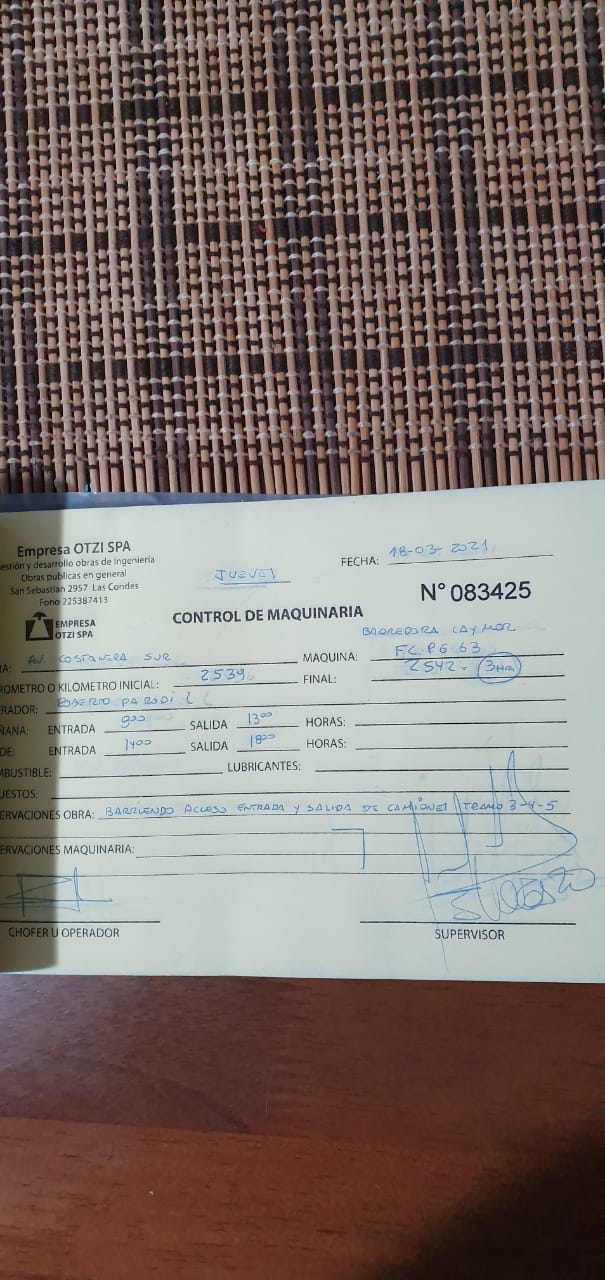 Empresa OTZI SPA
estión y desarrollo obras de Ingeniería
Obras publicas en general
San Sebastian 2957 Las Condes
Fono 225387413
EMPRESA
OTZI SPA
JUEVES
FECHA: 18-03-2021
N° 083425
CONTROL DE MAQUINARIA
BARREDORA LAYMOR
A: AV. COSTANERA SUR MAQUINA: FC PG 63
ROMETRO O KILOMETRO INICIAL: 2539 FINAL: 2542 = 3HR
RADOR: ROBERTO PARODI
ÑANA: ENTRADA 900 SALIDA 1300 HORAS:
DE: ENTRADA 1400 SALIDA 1800 HORAS:
MBUSTIBLE: LUBRICANTES:
UESTOS:
ERVACIONES OBRA: BARRIENDO ACCESO ENTRADA Y SALIDA DE CAMIONES TRAMO 3-4-5
ERVACIONES MAQUINARIA:
CHOFER U OPERADOR SUPERVISOR